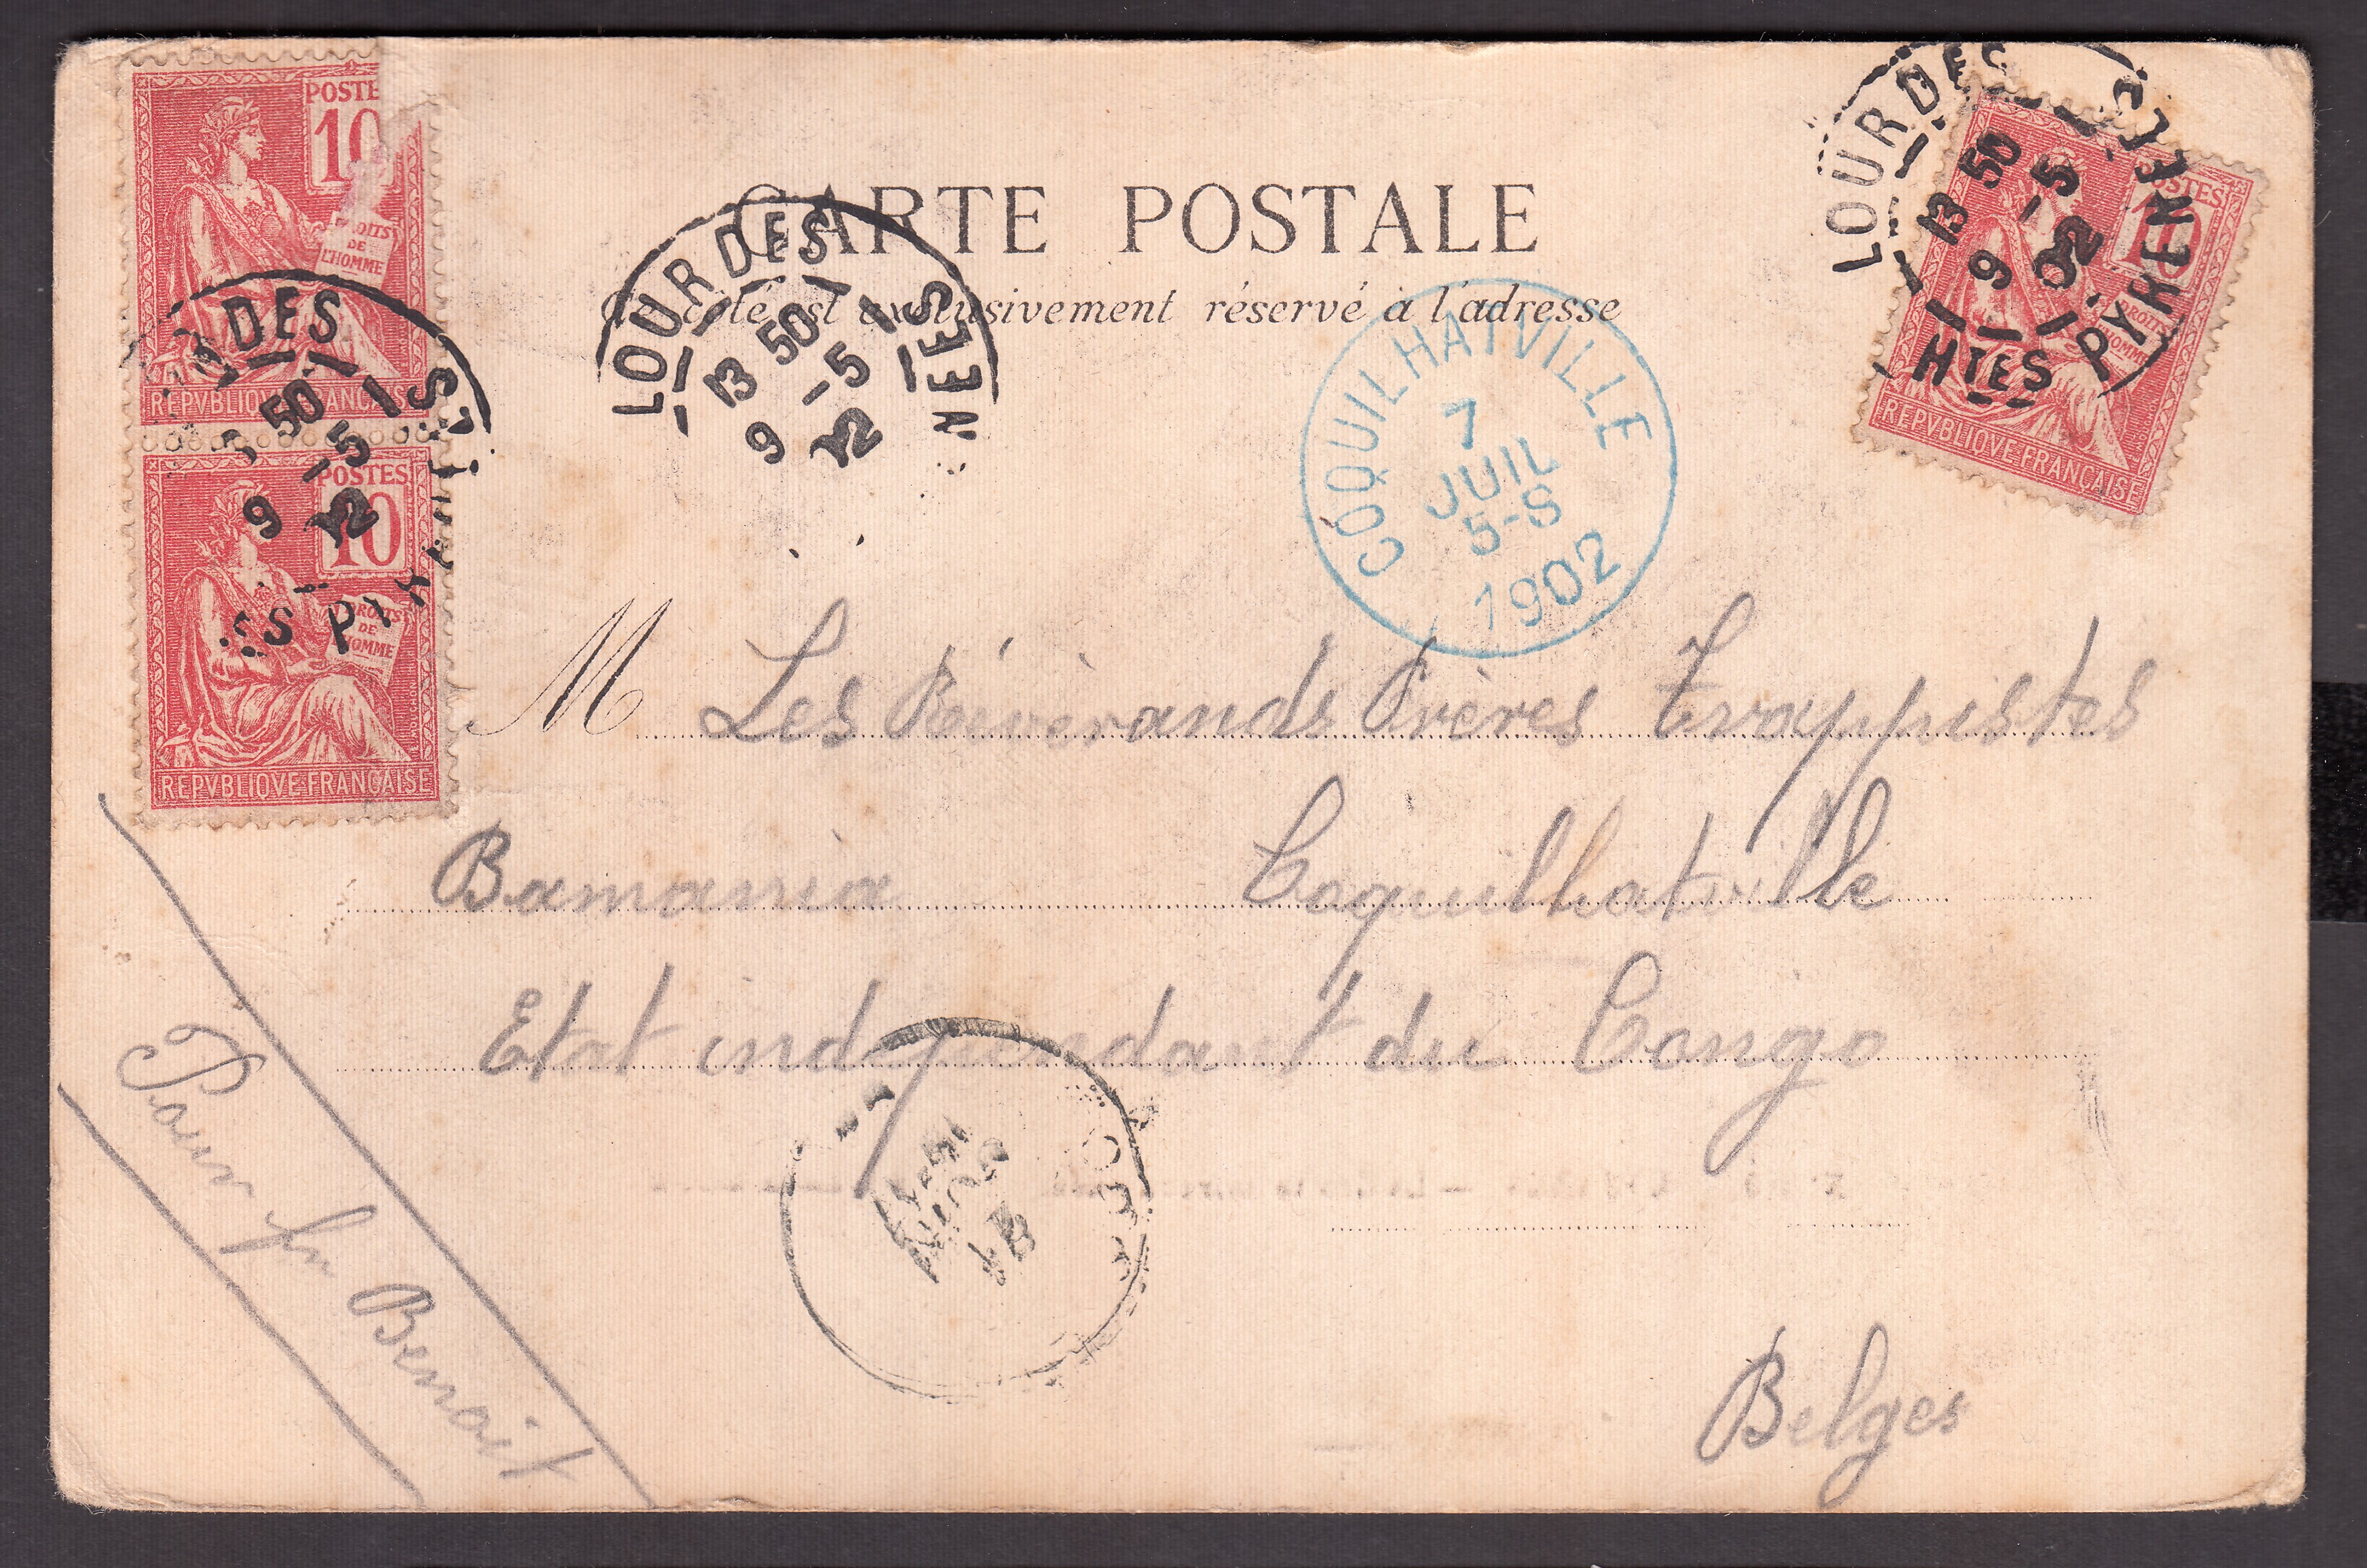 POSTE
10
DROITS
DE
L'HOMME
REPVBLIQVE FRANÇAISE
POSTES
10
DROITS
DE
L'HOMME
REPVBLIQVE FRANÇAISE
DES
50
9 -5
02
ES PY
CARTE POSTALE
Ce côté est exclusivement réservé à l'adresse
LOURDES
13 50
9 -5
02
NEES
COQUILHATVILLE
7
JUIL
5-S
1902
LOURDES
13 50
9 -5
02
HTES PYRENEES
POSTES
10
DROITS
HOMME
REPVBLIQVE FRANÇAISE
M Les Révérands Frères Trappistes
Bamania Coquilhatville
Etat indépendant du Congo
Belges
Pour fr Benoit